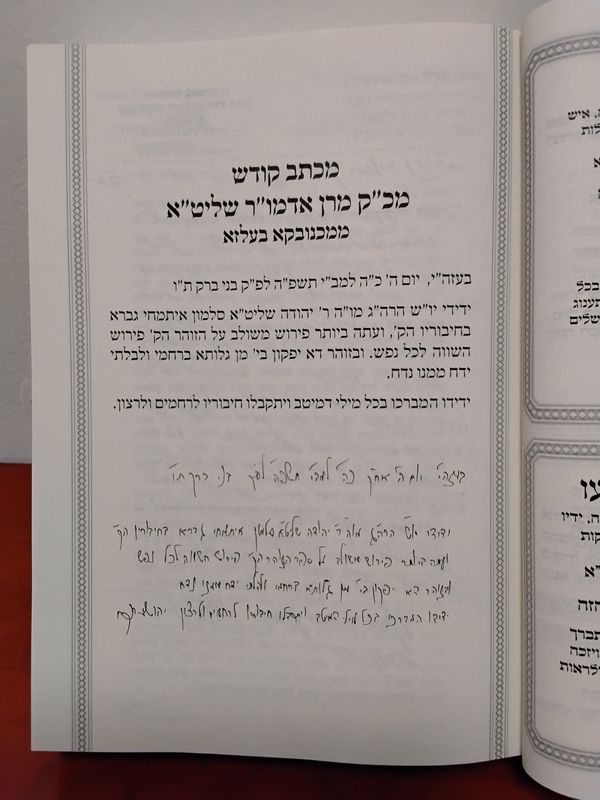 מכתב קודש
מכ״ק מרן אדמו״ר שליט״א
ממכנובקא בעלזא
בעזה״י, יום ה׳ כ״ה למב״י תשפ״ה לפ״ק בני ברק ת״ו
ידידי יו״ש הרה״ג מו״ה ר׳ יהודה שליט״א סלמון איתמחי גברא
בחיבוריו הק׳, ועתה ביותר פירוש משולב על הזוהר הק׳ פירוש
השווה לכל נפש. ובזוהר דא יפקון בי׳ מן גלותא ברחמי ולבלתי
ידח ממנו נדח.
ידידו המברכו בכל מילי דמיטב ויתקבלו חיבוריו לרחמים ולרצון.
בעזה״י יום ה׳ כה׳ למב״י תשפ״ה לפ״ק בני ברק ת״ו
ידידי הרה״ג מוה״ר יהודה שליט״א סלמון איתמחי גברא בחיבוריו הק׳
ועתה ביותר פירוש משולב על ספר הזוהר הק׳ פירוש השווה לכל נפש
ובזוהר דא יפקון בי׳ מן גלותא ברחמי ולבלתי ידח ממנו נדח
ידידו המברכו בכל מילי דמיטב ויתקבלו חיבוריו לרחמים ולרצון
איש
לות
בכל
תענוג
שלים
ח, ידיו
קות
״א
הזה
תברך
ויזכה
לראות